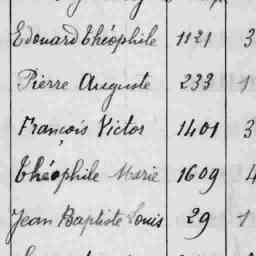 Edouard Théophile 1121 3
Pierre Auguste 233 1
François Victor 1401 3
Théophile Marie 1609 4
Jean Baptiste Louis 29 1